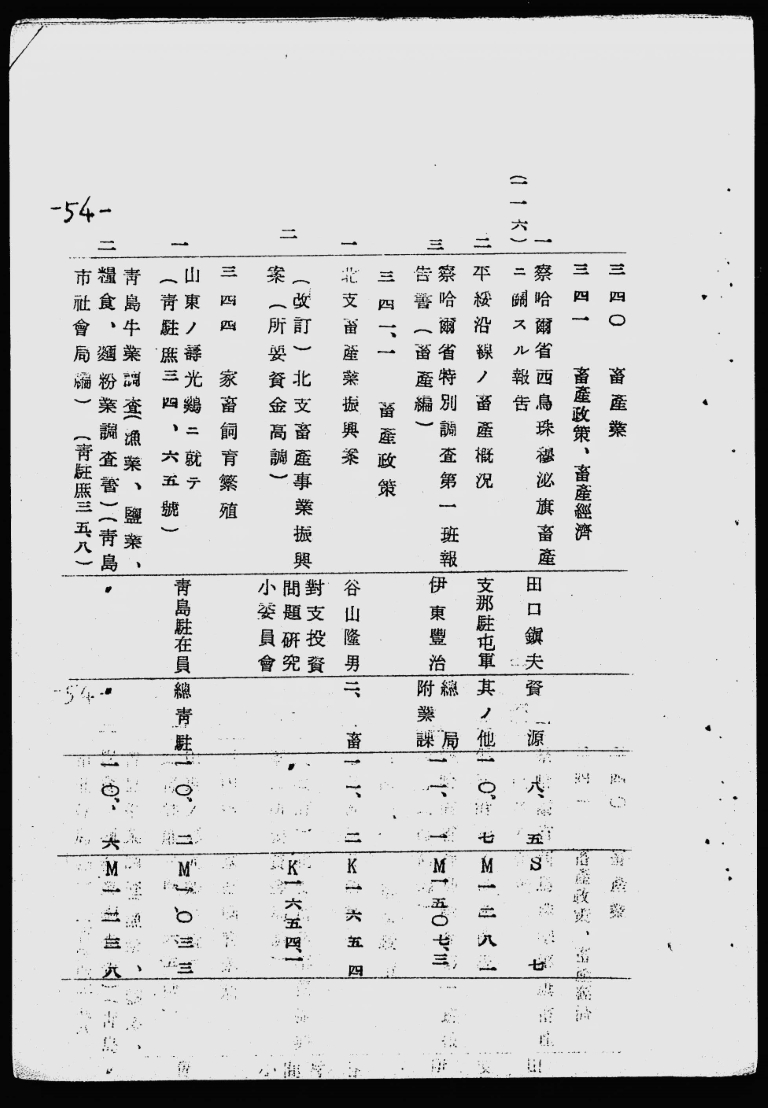 三四〇 畜產業
三四一 畜產政策、畜產經濟
(一一六) 一 察哈爾省西烏珠穆沁旗畜產ニ關スル報告 田口鎭夫 資源 八、五 S 七
二 平綏沿線ノ畜產概況 支那駐屯軍 其ノ他 一〇、七 M一二八一
三 察哈爾省特別調査第一班報告書(畜產編) 伊東豐治 總局附業課 一一、一 M一五〇七、三
三四一、一 畜產政策
一 北支畜產業振興案 谷山隆男 二、畜 一一、二 K一六五四
二 (改訂)北支畜產事業振興案(所要資金高調) 對支投資問題硏究小委員會 〃 K一六五四、一
三四四 家畜飼育繁殖
一 山東ノ壽光鷄ニ就テ(靑駐庶三四、六五號) 靑島駐在員 總靑駐 一〇、二 M一〇三三
二 靑島牛業調査(漁業、鹽業、糧食、麵粉業調査書)(靑島市社會局編) (靑駐庶三五、八) 〃 〃 一〇、六 M一二三八
-54-